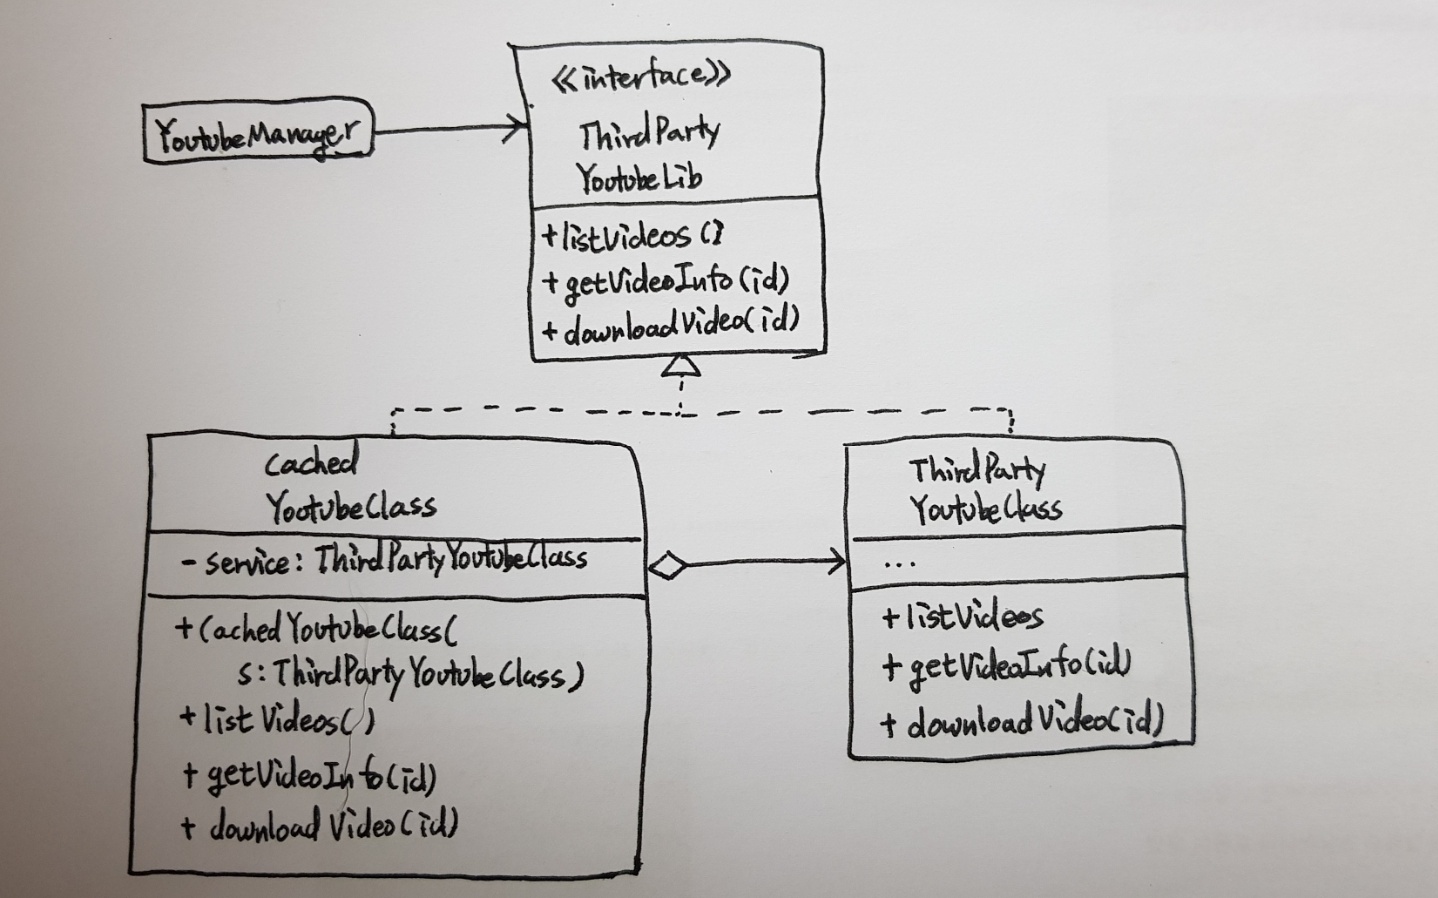 YoutubeManager
<<interface>>
ThirdParty
YoutubeLib
+listVideos()
+getVideoInfo(id)
+downloadVideo(id)
Cached
YoutubeClass
- service: ThirdPartyYoutubeClass
+CachedYoutubeClass(
s:ThirdPartyYoutubeClass)
+listVideos()
+getVideoInfo(id)
+downloadVideo(id)
ThirdParty
YoutubeClass
...
+listVideos
+getVideoInfo(id)
+downloadVideo(id)